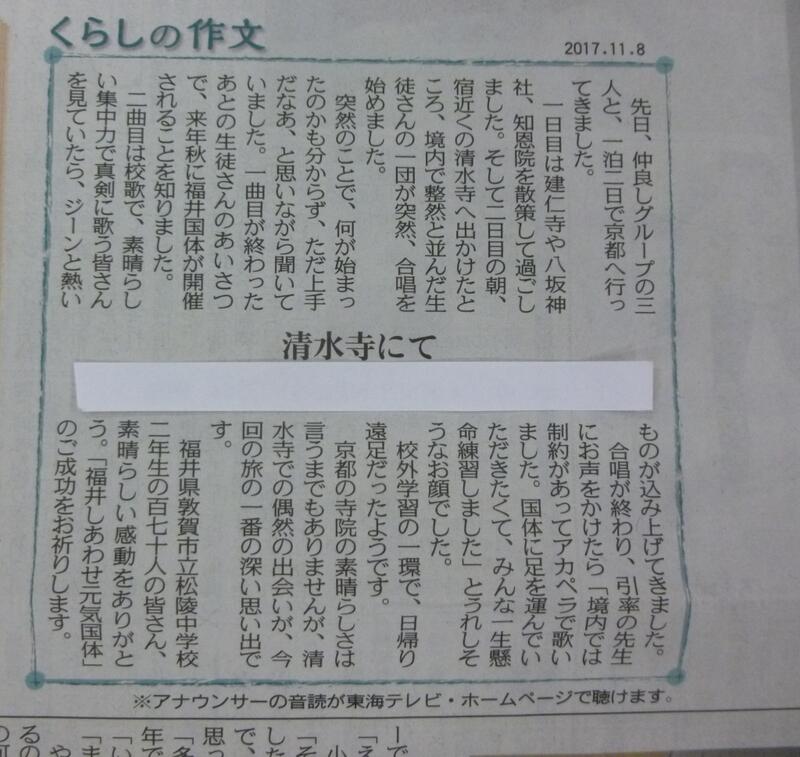 くらしの作文
2017.11.8
先日、仲良しグループの三
人と、一泊二日で京都へ行っ
てきました。
一日目は建仁寺や八坂神
社、知恩院を散策して過ごし
ました。そして二日目の朝、
宿近くの清水寺へ出かけたと
ころ、境内で整然と並んだ生
徒さんの一団が突然、合唱を
始めました。
突然のことで、何が始まっ
たのかも分からず、ただ上手
だなあ、と思いながら聞いて
いました。一曲目が終わった
あとの生徒さんのあいさつ
で、来年秋に福井国体が開催
されることを知りました。
二曲目は校歌で、素晴らし
い集中力で真剣に歌う皆さん
を見ていたら、ジーンと熱い
清水寺にて
ものが込み上げてきました。
合唱が終わり、引率の先生
にお声をかけたら「境内では
制約があってアカペラで歌い
ました。国体に足を運んでい
ただきたくて、みんな一生懸
命練習しました」とうれしそ
うなお顔でした。
校外学習の一環で、日帰り
遠足だったようです。
京都の寺院の素晴らしさは
言うまでもありませんが、清
水寺での偶然の出会いが、今
回の旅の一番の深い思い出で
す。
福井県敦賀市立松陵中学校
二年生の百七十人の皆さん、
素晴らしい感動をありがと
う。「福井しあわせ元気国体」
のご成功をお祈りします。
※アナウンサーの音読が東海テレビ・ホームページで聴けます。
ーで
「え
小
「そ
した
で、
思っ
「多
年で
「い
「ま
や
るの